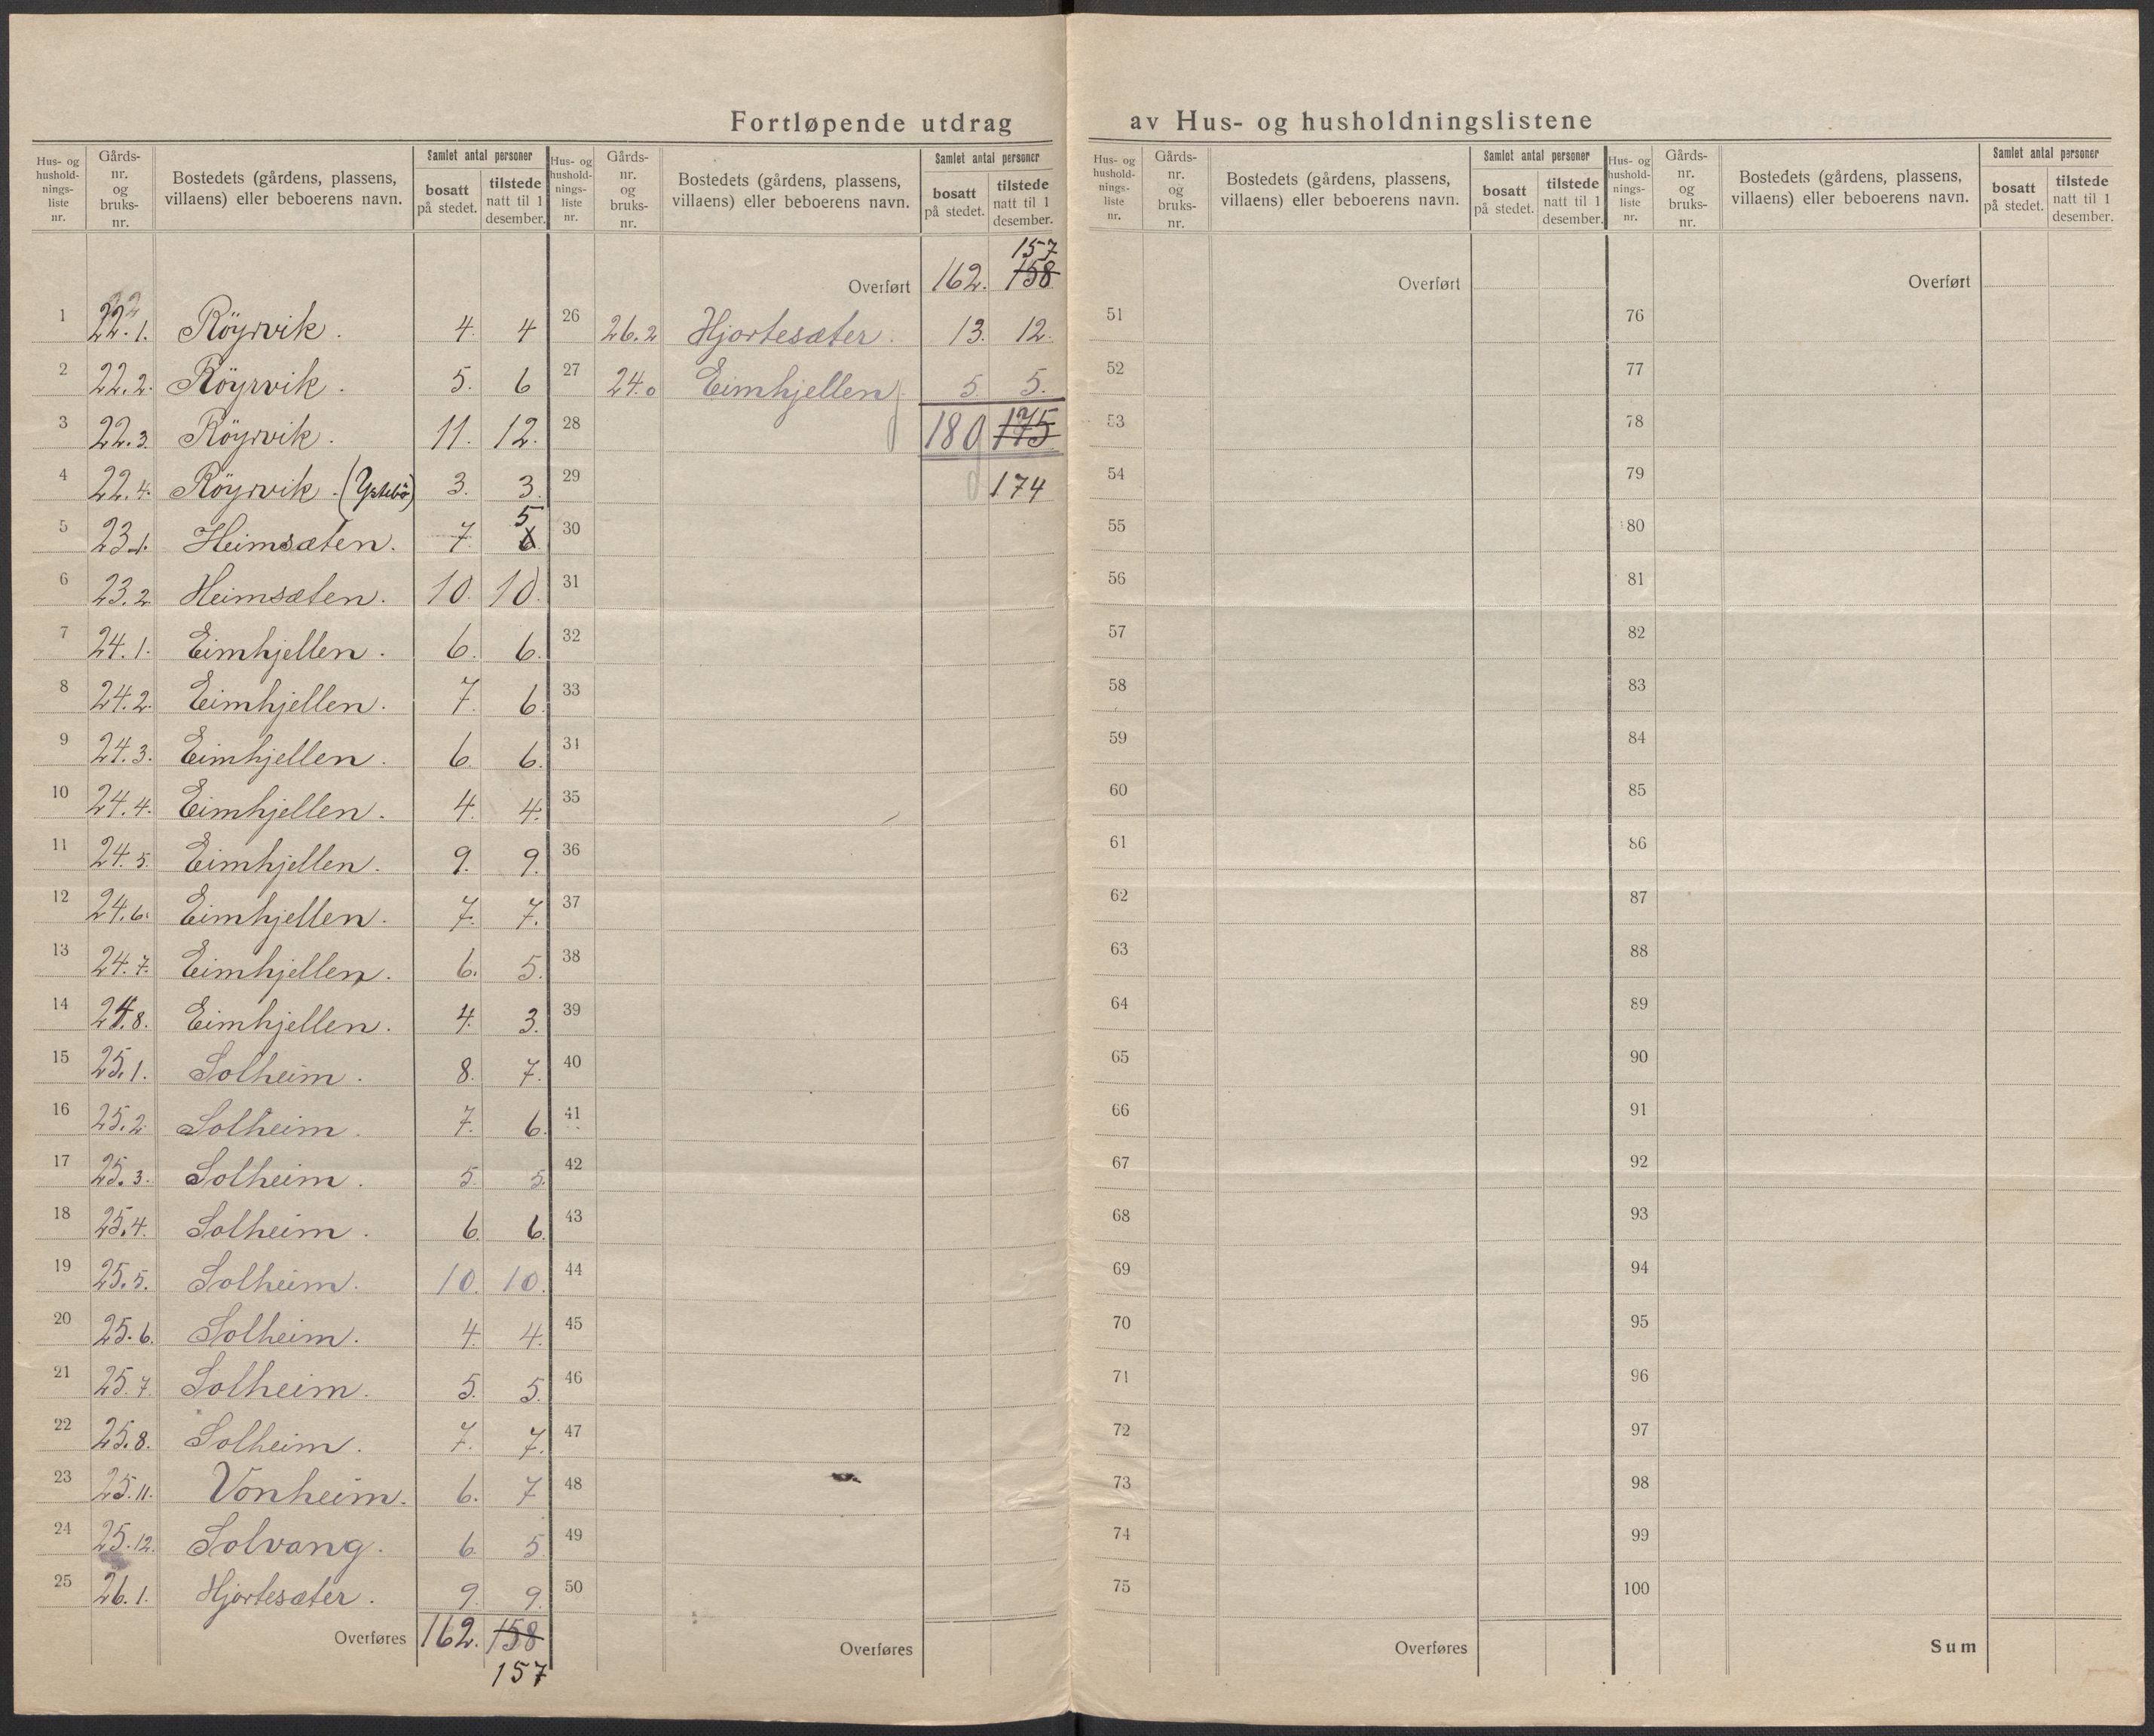 Fortløpende utdrag av Hus- og husholdningslistene
Hus- og hushold-nings-liste nr. | Gårds-nr. og bruks-nr. | Bostedets (gårdens, plassens, villaens) eller beboerens navn. | Samlet antal personer | bosatt på stedet. | tilstede natt til 1 desember.
1 22.1. Röyrvik. 4. 4
2 22.2. Röyrvik. 5. 6
3 22.3. Röyrvik. 11. 12.
4 22.4. Röyrvik. 3. 3.
5 23.1. Heimsæten. 7. 6 5
6 23.2 Heimsæten. 10. 10.
7 24.1. Eimhjellen. 6. 6.
8 24.2. Eimhjellen. 7. 6.
9 24.3. Eimhjellen. 6. 6.
10 24.4. Eimhjellen. 4. 4.
11 24.5. Eimhjellen. 9. 9.
12 24.6. Eimhjellen. 7. 7.
13 24.7. Eimhjellen. 6. 5.
14 24.8. Eimhjellen. 4. 3.
15 25.1. Solheim. 8. 7.
16 25.2 Solheim. 7. 6.
17 25.3. Solheim. 5. 5.
18 25.4. Solheim. 6. 6.
19 25.5. Solheim. 10. 10.
20 25.6. Solheim. 4. 4.
21 25.7. Solheim. 5. 5.
22 25.8. Solheim. 7. 7.
23 25.11. Vonheim. 6. 7
24 25.12. Solvang. 6 5
25 26.1. Hjortesæter. 9. 9.
Overføres 162. 158
157
Hus- og hushold-nings-liste nr. | Gårds-nr. og bruks-nr. | Bostedets (gårdens, plassens, villaens) eller beboerens navn. | Samlet antal personer | bosatt på stedet. | tilstede natt til 1 desember.
157
Overført 162. 158
26 26.2 Hjortesæter. 13. 12.
27 24.0 Eimhjellen 5 5.
28 180 175
29 174
30
31
32
33
34
35
36
37
38
39
40
41
42
43
44
45
46
47
48
49
50
Overføres
Hus- og hushold-nings-liste nr. | Gårds-nr. og bruks-nr. | Bostedets (gårdens, plassens, villaens) eller beboerens navn. | Samlet antal personer | bosatt på stedet. | tilstede natt til 1 desember.
Overført
51
52
53
54
55
56
57
58
59
60
61
62
63
64
65
66
67
68
69
70
71
72
73
74
75
Overføres
Hus- og hushold-nings-liste nr. | Gårds-nr. og bruks-nr. | Bostedets (gårdens, plassens, villaens) eller beboerens navn. | Samlet antal personer | bosatt på stedet. | tilstede natt til 1 desember.
Overført
76
77
78
79
80
81
82
83
84
85
86
87
88
89
90
91
92
93
94
95
96
97
98
99
100
Sum